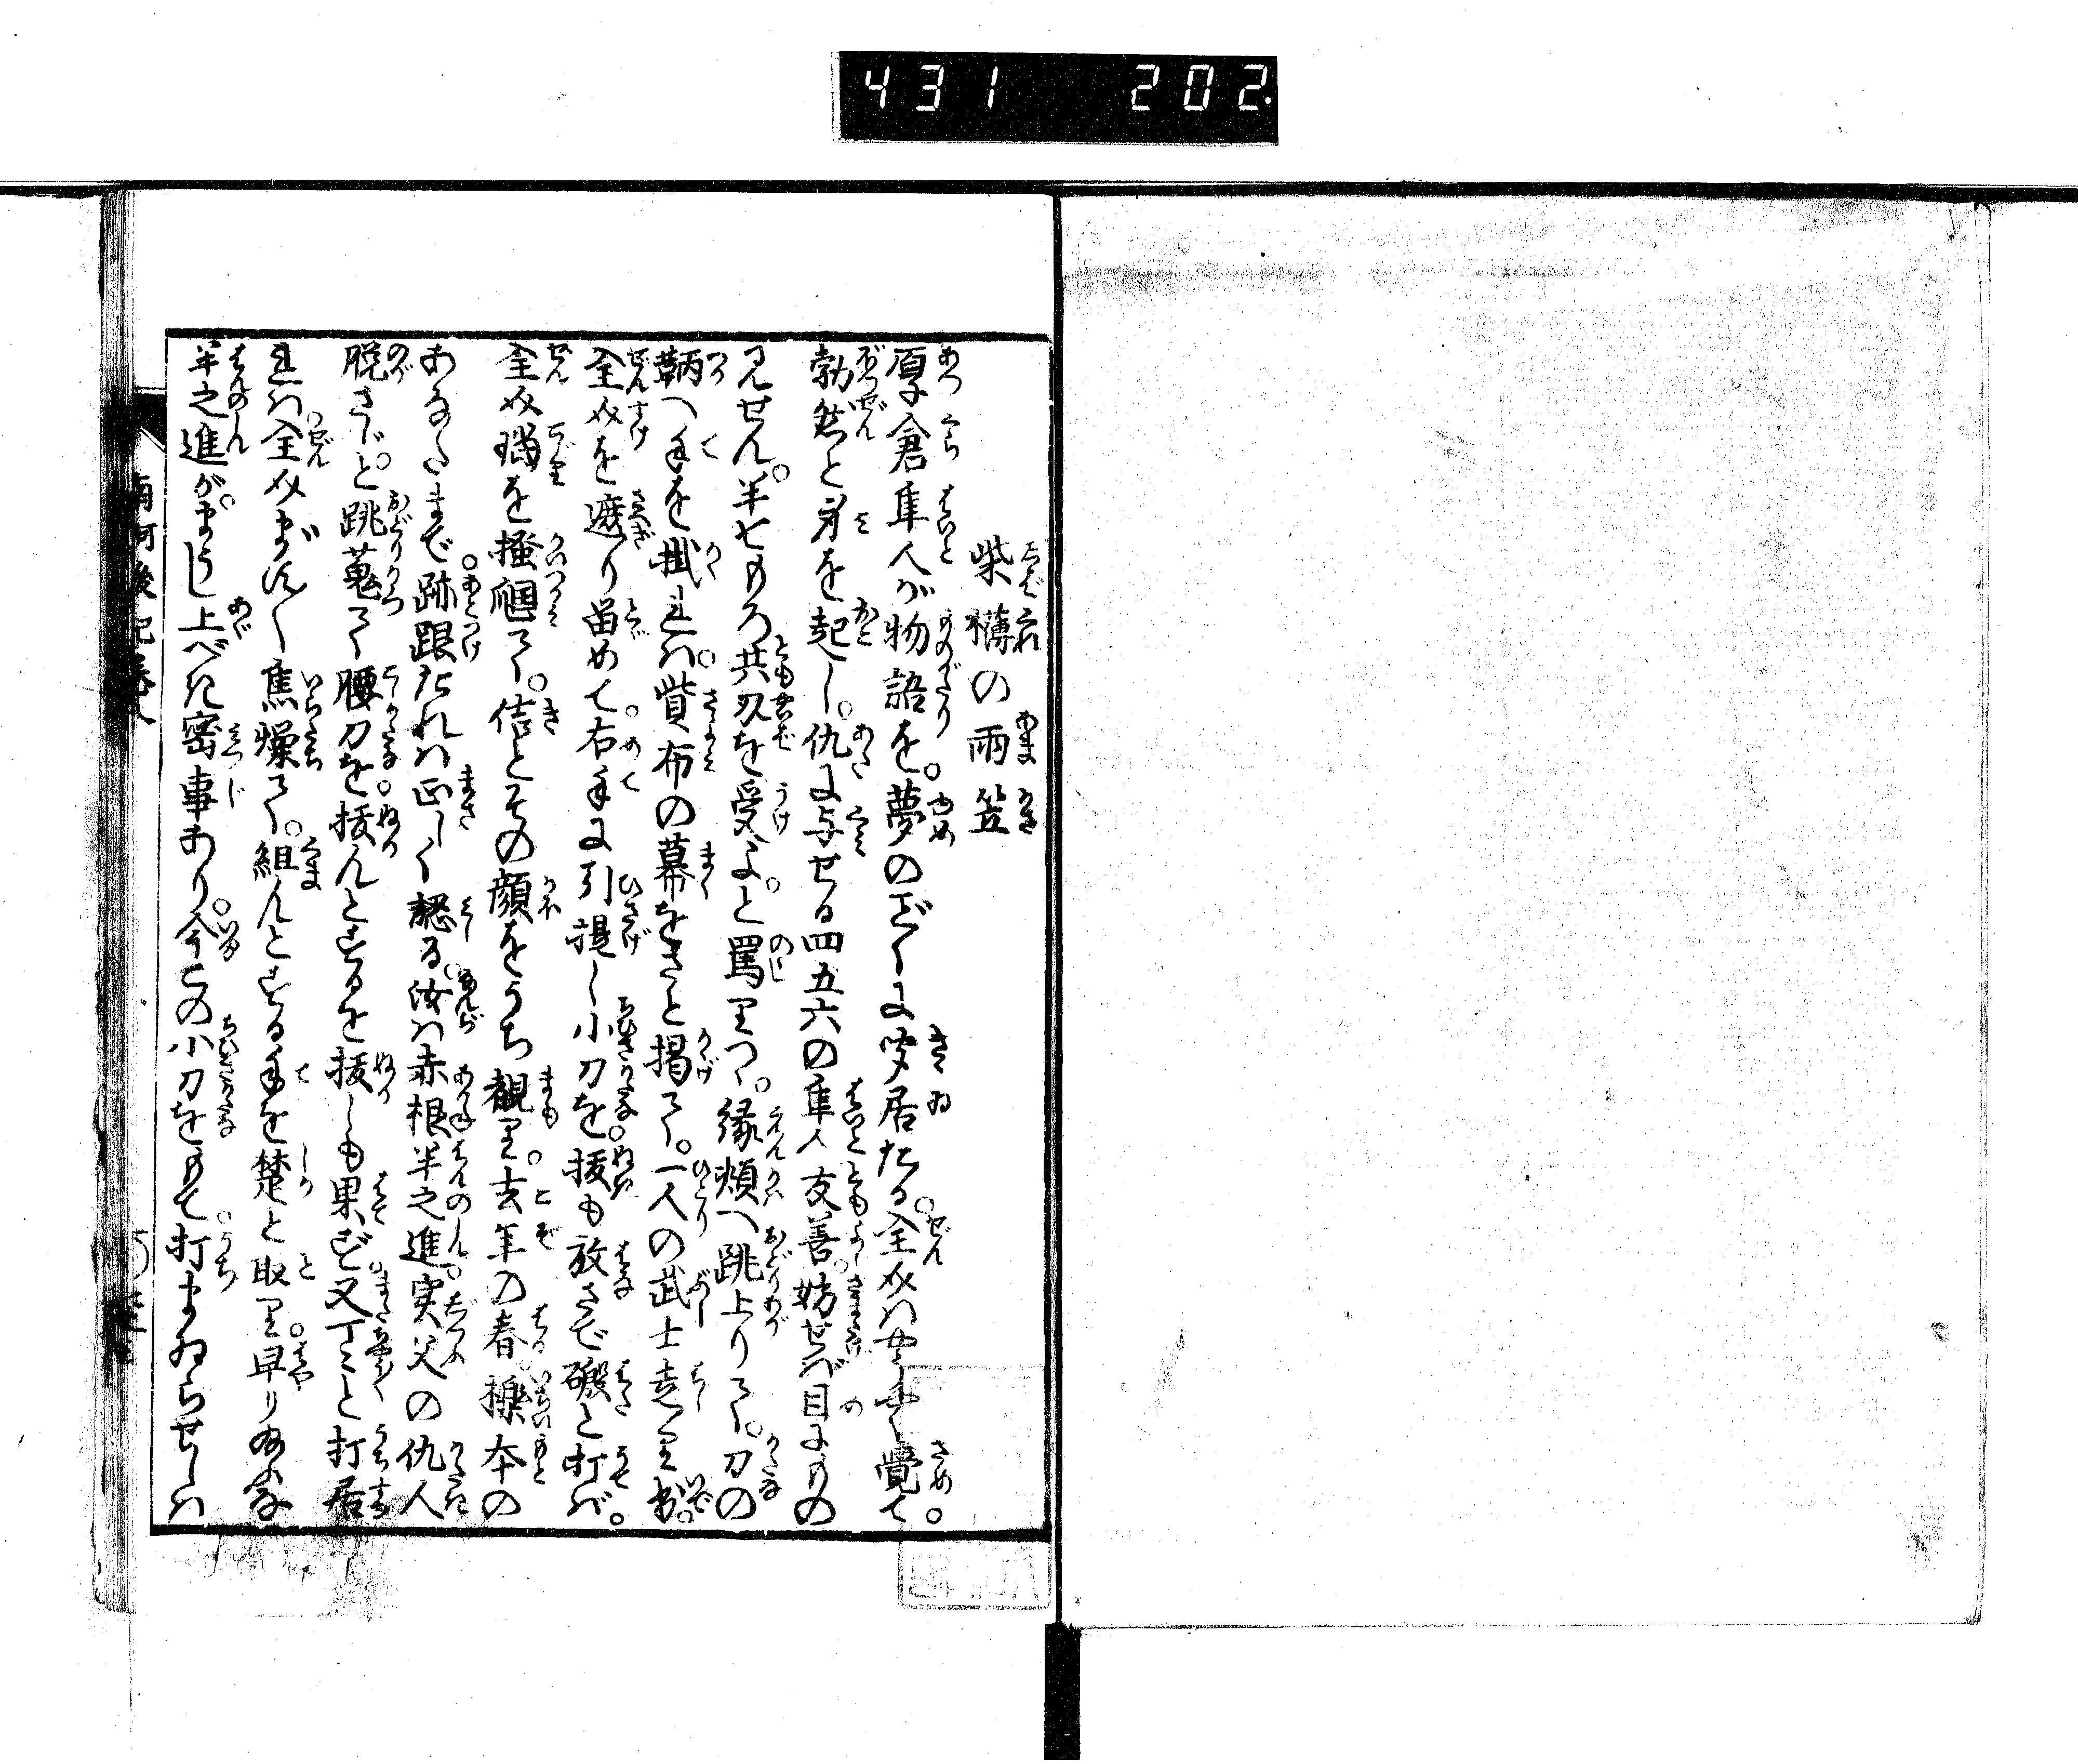 431 202
柴榑の雨笠
厚倉隼人が物語を。夢のごとくに聞居たる。全女は漸く覚て。
勃然と身を起し。仇に与せる四五六の隼人友善。妨せば目にもの
見せん。半七もろ共刃を受よ。と罵りつゝ。縁頬へ跳上りて。刀の
鞆へ手を掛れば。貲布の幕をさと掲て。一人の武士走り出。
全女を遮り留めて。右手に引提し小刀を。抜も放さで礑と打ば。
全女瑙を掻𢮦て。佶とその顔をうち観り。去年の春。櫟本の
あなたまで。跡跟たれば正しく認る。汝は赤根半之進。実父の仇人
脱さじ。と跳蒐て腰刀を。抜んとするを抜しも果ず。又丁と打居
れば。全女ます〳〵焦燥て。組んとする手を楚と取り。早り給ふな
半之進が。まうし上べき密事あり。今この小刀をもて。打まゐらせしは
南柯後記巻之八